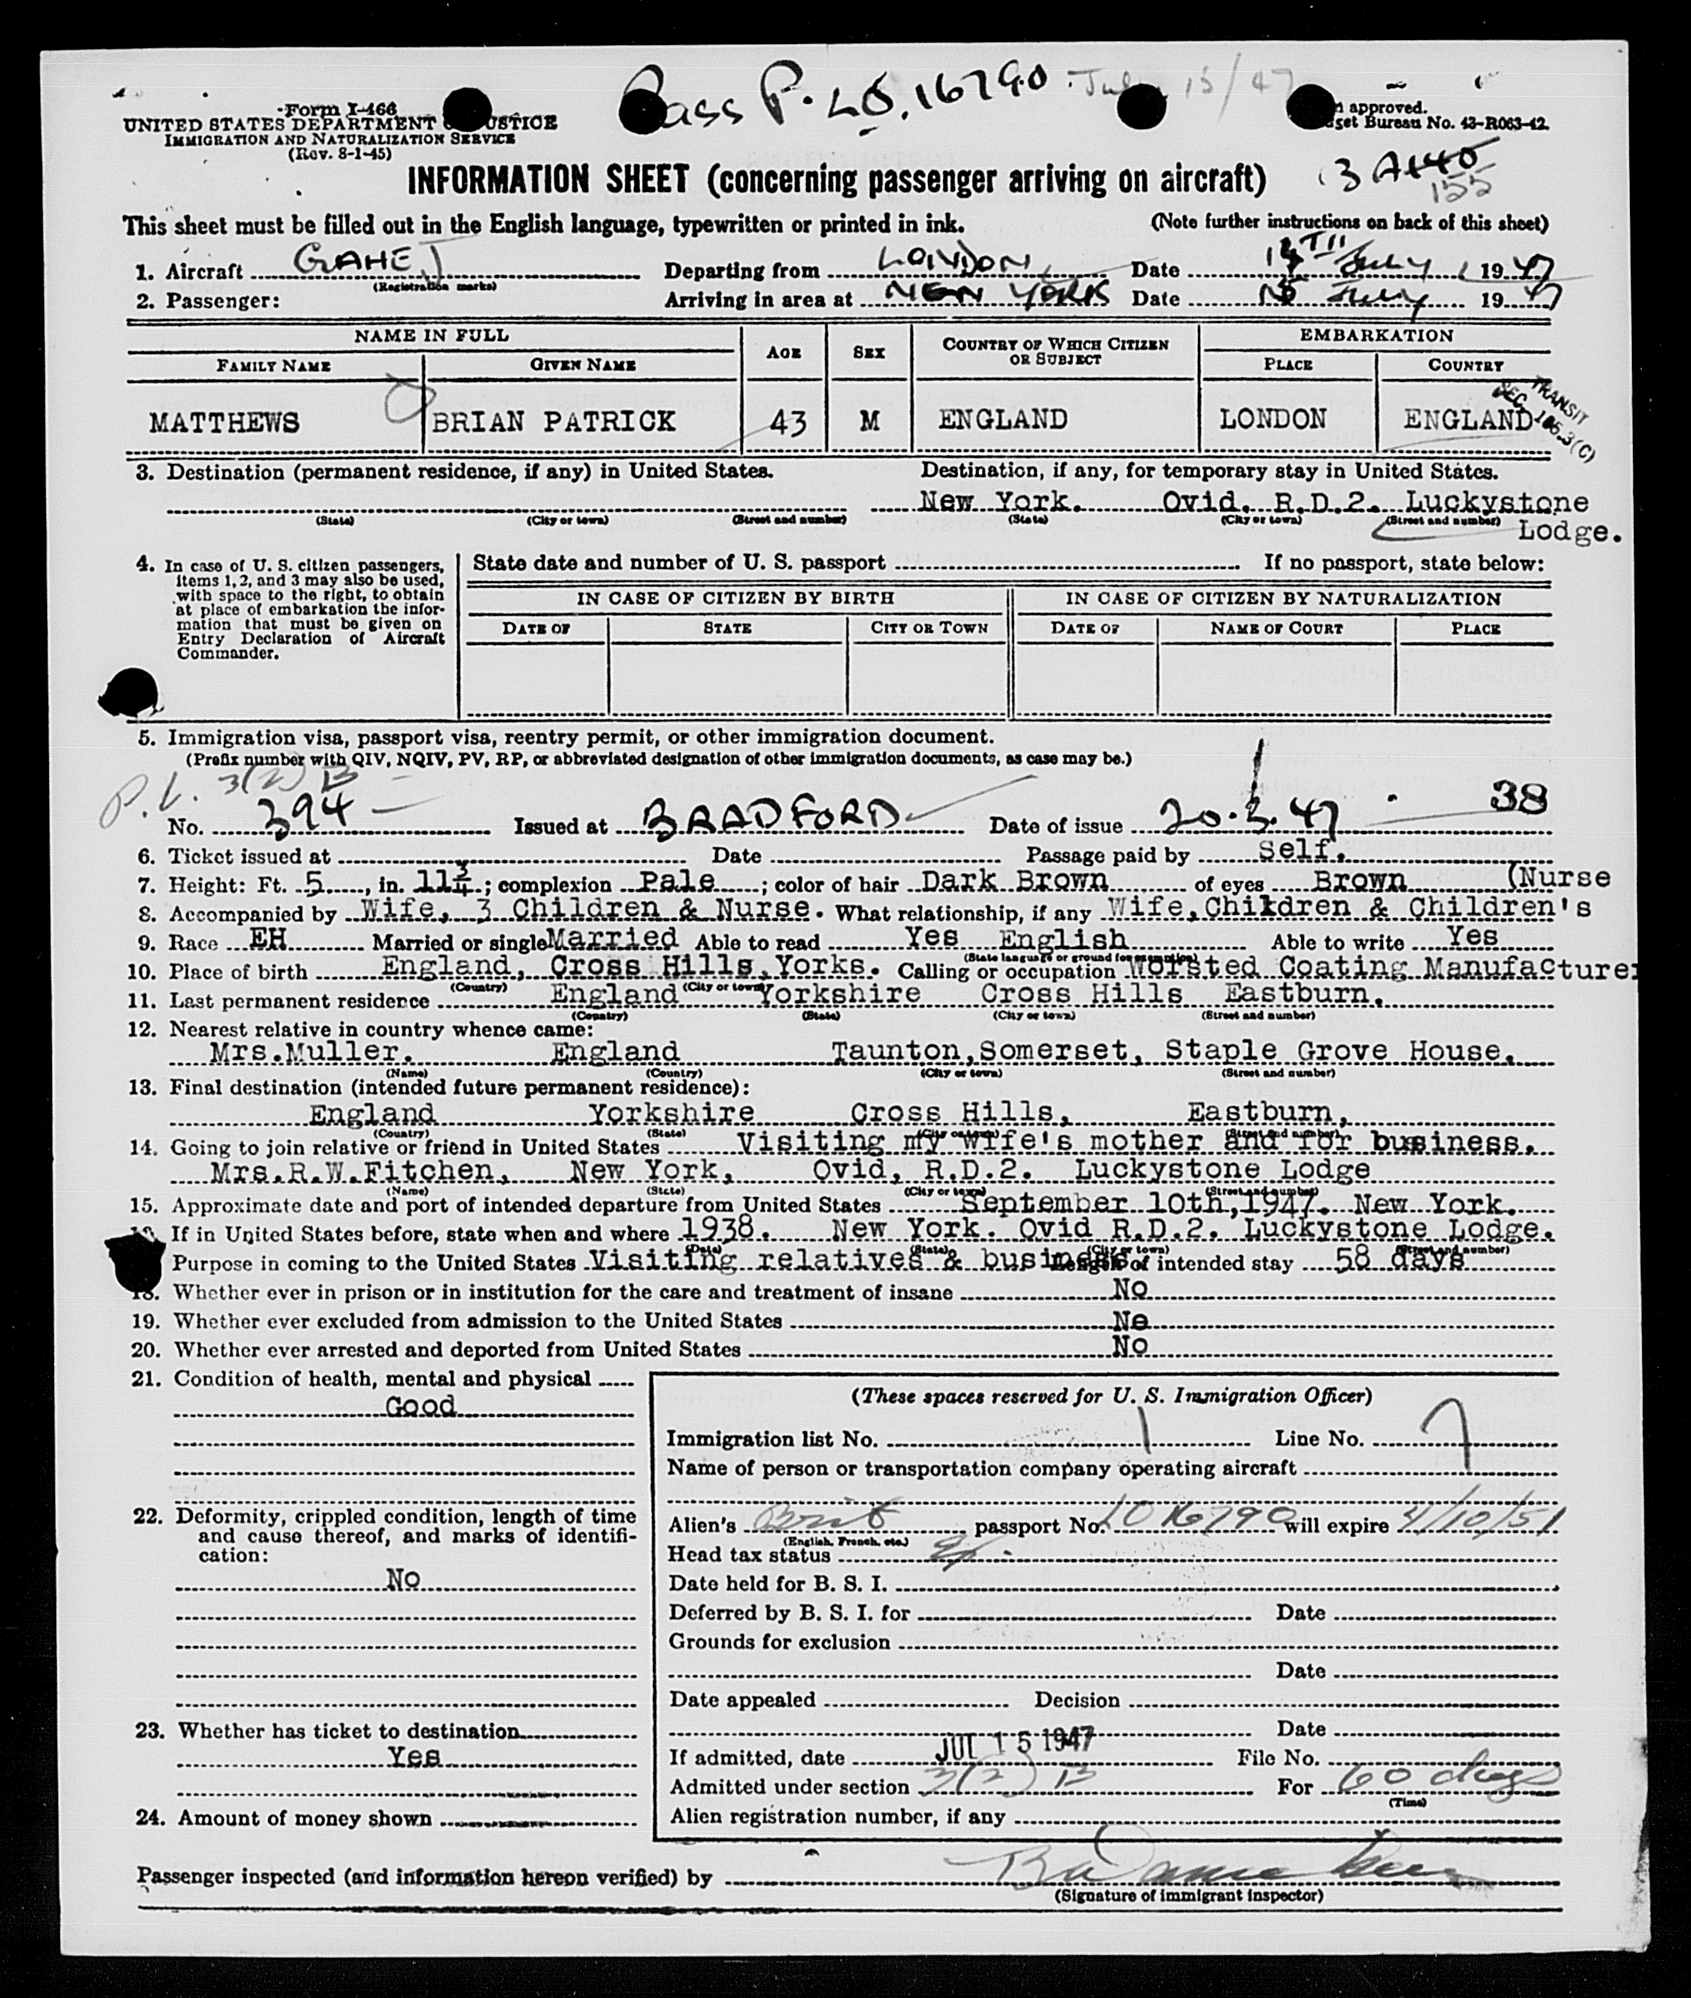 Pass P. LO. 16790 July 15/47
Form I-466
UNITED STATES DEPARTMENT JUSTICE
IMMIGRATION AND NATURALIZATION SERVICE
(Rev. 8-1-45)
approved.
Budget Bureau No. 43-R063-42.
INFORMATION SHEET (concerning passenger arriving on aircraft)
155
This sheet must be filled out in the English language, typewritten or printed in ink. (Note further instructions on back of this sheet)
1. Aircraft GAHEJ Departing from LONDON Date 14TH July, 1947
(Registration marks)
2. Passenger: Arriving in area at NEW YORK Date 15 July 1947
NAME IN FULL AGE SEX COUNTRY OF WHICH CITIZEN OR SUBJECT EMBARKATION
FAMILY NAME GIVEN NAME PLACE COUNTRY
TRANSIT
SEC. 165.3(C)
MATTHEWS BRIAN PATRICK 43 M ENGLAND LONDON ENGLAND
3. Destination (permanent residence, if any) in United States. Destination, if any, for temporary stay in United States.
New York. Ovid, R.D.2. Luckystone
(State) (City or town) (Street and number) (State) (City or town) (Street and number)
Lodge.
4. In case of U. S. citizen passengers, items 1, 2, and 3 may also be used, with space to the right, to obtain at place of embarkation the information that must be given on Entry Declaration of Aircraft Commander.
State date and number of U. S. passport If no passport, state below:
IN CASE OF CITIZEN BY BIRTH IN CASE OF CITIZEN BY NATURALIZATION
DATE OF STATE CITY OR TOWN DATE OF NAME OF COURT PLACE
5. Immigration visa, passport visa, reentry permit, or other immigration document.
(Prefix number with QIV, NQIV, PV, RP, or abbreviated designation of other immigration documents, as case may be.)
P.V. 3(2) B
38
No. 394 Issued at BRADFORD Date of issue 20.3.47
6. Ticket issued at Date Passage paid by Self.
7. Height: Ft. 5, in. 11 3/4; complexion Pale; color of hair Dark Brown of eyes Brown (Nurse
8. Accompanied by Wife, 3 Children & Nurse. What relationship, if any Wife, Children & Children's
9. Race EH Married or single Married Able to read Yes English Able to write Yes
(State language or ground for exemption)
10. Place of birth England, Cross Hills, Yorks. Calling or occupation Worsted Coating Manufacturer
(Country) (City or town)
11. Last permanent residence England Yorkshire Cross Hills Eastburn.
(Country) (State) (City or town) (Street and number)
12. Nearest relative in country whence came:
Mrs.Muller. England Taunton,Somerset, Staple Grove House.
(Name) (Country) (City or town) (Street and number)
13. Final destination (intended future permanent residence):
England Yorkshire Cross Hills, Eastburn,
(Country) (State) (City or town) (Street and number)
14. Going to join relative or friend in United States Visiting my wife's mother and for business.
Mrs.R.W.Fitchen, New York, Ovid, R.D.2. Luckystone Lodge
(Name) (State) (City or town) (Street and number)
15. Approximate date and port of intended departure from United States September 10th,1947. New York.
If in United States before, state when and where 1938. New York. Ovid R.D.2. Luckystone Lodge.
(Date) (State) (City or town) (Street and number)
Purpose in coming to the United States Visiting relatives & business. Length of intended stay 58 days
18. Whether ever in prison or in institution for the care and treatment of insane No
19. Whether ever excluded from admission to the United States No
20. Whether ever arrested and deported from United States No
21. Condition of health, mental and physical
Good
22. Deformity, crippled condition, length of time and cause thereof, and marks of identification:
No
23. Whether has ticket to destination
Yes
24. Amount of money shown
(These spaces reserved for U. S. Immigration Officer)
Immigration list No. 1 Line No. 7
Name of person or transportation company operating aircraft
Alien's Brit passport No. LO 16790 will expire 4/10/51
(English, French, etc.)
Head tax status
Date held for B. S. I.
Deferred by B. S. I. for Date
Grounds for exclusion
Date
Date appealed Decision
Date
If admitted, date JUL 15 1947 File No.
Admitted under section 3(2) B For 60 days
(Time)
Alien registration number, if any
Passenger inspected (and information hereon verified) by
(Signature of immigrant inspector)